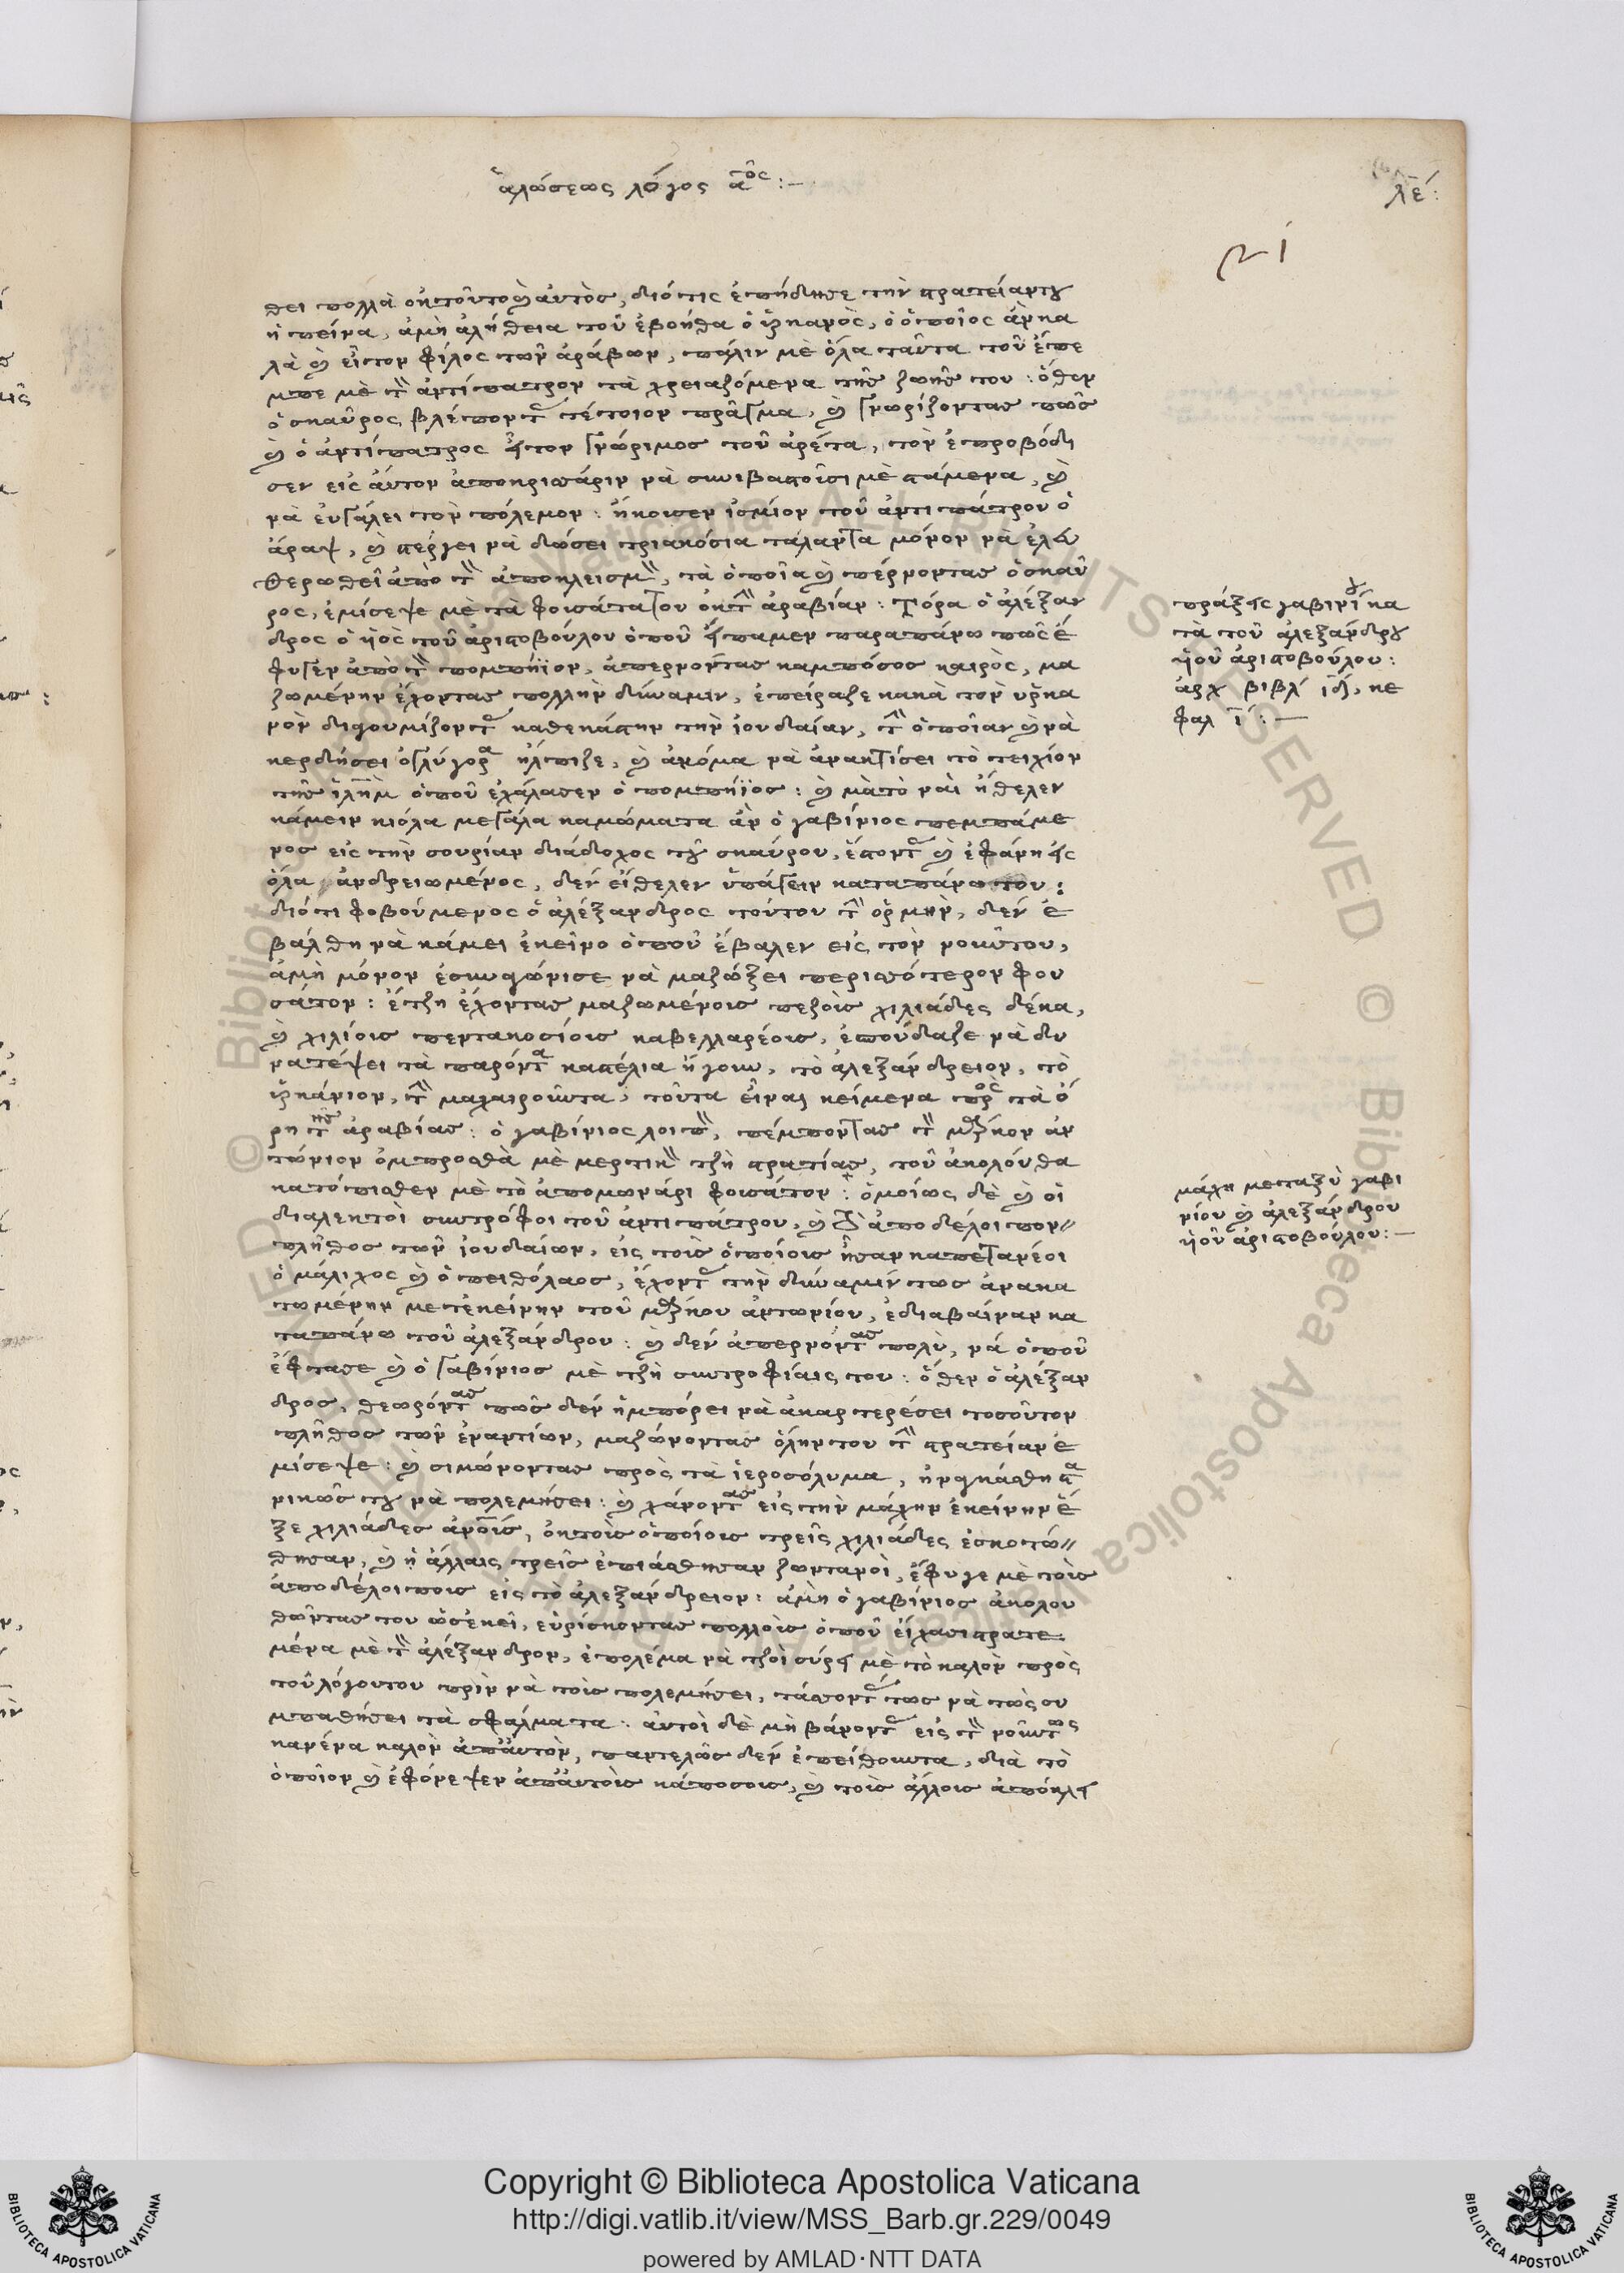 ἁλώσεως λόγος α^ος :—
λε΄:
θει πολλὰ ἐκ τοῦτο καὶ αὐτὸσ, διότις ἐπήδησε τὴν στρατείαν του
ἡ πείνα, ἀμὴ ἀλήθεια τοῦ ἐβοήθα ὁ ὑρκανὸς, ὁ ὁποῖος ἀνκα
λὰ καὶ εἶτον φίλος τῶν ἀράβων, πάλιν μὲ ὅλα ταῦτα τοῦ ἔπε
μπε μὲ τὸν ἀντίπατρον τὰ χρειαζόμενα τῆσ ζωῆσ του : ὅθεν
ὁ σκαῦρος βλέποντας τέτοιον πρᾶγμα, καὶ γνωρίζοντασ πῶσ
καὶ ὁ ἀντίπατρος εἶτον γνώριμοσ τοῦ ἀρέτα, τὸν ἐπροβόδι
σεν εἰς αὐτον ἀποκρισάριν νὰ συνιβαστοῦσι μὲ στάμενα, καὶ
νὰ εὐγάλει τὸν πόλεμον : ἤκουσεν ἰσμίον τοῦ ἀντιπάτρου ὁ
ἄραψ, καὶ στέργει νὰ δώσει τριακόσια τάλαντα μόνον νὰ ἐλευ
θερωθεῖ ἀπὸ τὸν ἀποκλεισμὸν, τὰ ὁποῖα καὶ πέρνοντασ ὁ σκαῦ
ρος, ἐμίσεψε μὲ τὰ φουσάτα του ἐκ τὴν ἀραβίαν : Τόρα ὁ ἀλέξαν
δρος ὁ ὑὸς τοῦ ἀριστοβούλου ὁποῦ εἴπαμεν παραπάνω πῶς ἔ
φυγεν ἀπὸ τὸν πομπήϊον, ἀπερνοῦντασ καμπόσοσ καιρὸς, μα
ζωμένην ἔχοντασ πολλὴν δύναμιν, ἐπείραζε κακὰ τὸν ὑρκα
νὸν διγουμίζοντας καθεκάστην τὴν ἰουδαίαν, τὴν ὁποίαν καὶ νὰ
κερδήσει ὀγλύγορα ἤλπιζε, καὶ ἀκόμα νὰ ἀνακτίσει τὸ τειχίον
τῆσ ἱλημ ὁποῦ ἐχάλασεν ὁ πομπήϊος : καὶ μὰ τὸ ναὶ ἤθελεν
κάμειν κιόλα μεγάλα καμώματα ἂν ὁ γαβίνιος πεμπάμε
νοσ εἰς τὴν σουρίαν διάδοχος τοῦ σκαύρου, ἔστοντας καὶ ἐφάνη εἰς
ὅλα ἀνδρειωμένος, δεν εἴθελεν ὑπάγειν καταπάνω του :
διότι φοβούμενος ὁ ἀλέξανδρος τούτου τὴν ὁρμὴν, δεν ἐ
βάλθη νὰ κάμει ἐκεῖνο ὁποῦ ἔβαλεν εἰς τὸν νοῦν του,
ἀμὴ μόνον ἐσυγώνισε νὰ μαζώξει περισσότερον φου
σάτον : ἔτζη ἔχοντασ μαζωμένουσ πεζοὺσ χιλιάδες δέκα,
καὶ χιλίουσ πεντακοσίουσ καβελλαρέουσ, ἐσπούδαζε νὰ δυ
νατέψει τὰ παρόντα καστέλια ἤγουν, τὸ ἀλεξάνδρειον, τὸ
ὑρκάνιον, τὴν μαχαιροῦντα, τοῦτα εἶναι κείμενα πρὸς τὰ ὄ
ρη τῆσ ἀραβίασ : ὁ γαβίνιος λοιπὸν, πέμποντασ τὸν μᾶρκον ἀν
τώνιον ὀμπροσθὰ μὲ μερτικὸν τζὴ στρατίασ, τοῦ ἀκολούθα
κατόπισθεν μὲ τὸ ἀπομωνάρι φουσάτον : ὁμοίως δὲ καὶ οἱ
διαλεκτοὶ συντρόφοι τοῦ ἀντιπάτρου, καὶ τὸ ἀποδέλοιπον
πλῆθος τῶν ἰουδαίων, εἰς τοὺσ ὁποίουσ ἦσαν καπετανέοι
ὁ μάλιχος καὶ ὁ πειθόλαοσ, ἔχοντας τὴν δύναμίν τωσ ἀνακα
τωμένην μετεκείνην τοῦ μάρκου ἀντωνίου, ἐδιαβαίναν κα
ταπάνω τοῦ ἀλεξάνδρου : καὶ δεν ἀπερνόντασ πολὺ, νά ὁποῦ
ἔφτασε καὶ ὁ γαβίνιοσ μὲ τζὴ συντροφίαις του : ὅθεν ὁ ἀλέξαν
δροσ, θεωρόντασ πῶσ δεν ἠμπόρει νὰ ἀκαρτερέσει τοσοῦτον
πλῆθοσ τῶν ἐναντίων, μαζώνοντασ ὅλην του τὴν στρατείαν ἐ
μίσεψε : καὶ σιμώνοντασ πρὸς τὰ ἱεροσόλυμα, ἠναγκάσθη στα
νικῶσ του νὰ πολεμήσει : καὶ χάνοντασ εἰς τὴν μάχην ἐκείνην ἕ
ξε χιλιάδες ἀνοὺσ, ἐκ τοὺσ ὁποίουσ τρεῖς χιλιάδες ἐσκοτώ
θησαν, καὶ ἡ ἄλλαις τρεῖσ ἐπιάσθησαν ζωντανοὶ, ἔφυγε μὲ τοὺσ
ἀποδέλοιπουσ εἰς τὸ ἀλεξάνδρειον : ἀμὴ ὁ γαβίνιοσ ἀκολου
θῶντασ του ὡσεκεῖ, εὑρίσκοντασ πολλοὺσ ὁποῦ εἴχασι στρατε
μένα μὲ τὸν ἀλέξανδρον, ἐπολέμα νὰ τζοὶ σύρει μὲ τὸ καλὸν πρὸς
τοῦ λόγουτου πρὶν νὰ τοὺσ πολεμήσει, τάσσοντας τωσ νὰ τὼς συ
μπαθήσει τὰ σφάλματα : αὐτοὶ δὲ μὴ βάνοντας εἰς τὸν νοῦν τως
κανένα καλὸν ἀπ᾽ αὐτὸν, παντελῶσ δεν ἐπείθουντα, διὰ τὸ
ὁποῖον καὶ ἐφόνεψεν ἀπ᾽ αὐτοὺσ κάποσουσ, καὶ τοὺσ ἄλλουσ ἀπόκλει
πράξεις γαβινίου κα
τὰ τοῦ ἀλεξάνδρου
ὑοῦ ἀριστοβούλου :
ἀρχ βιβλ ιδ, κε
φαλ ι :—
μάχη μεταξὺ γαβι
νίου καὶ ἀλεξάνδρου
ὑοῦ ἀριστοβούλου :—
Copyright © Biblioteca Apostolica Vaticana
http://digi.vatlib.it/view/MSS_Barb.gr.229/0049
powered by AMLAD·NTT DATA
BIBLIOTECA APOSTOLICA VATICANA
BIBLIOTECA APOSTOLICA VATICANA